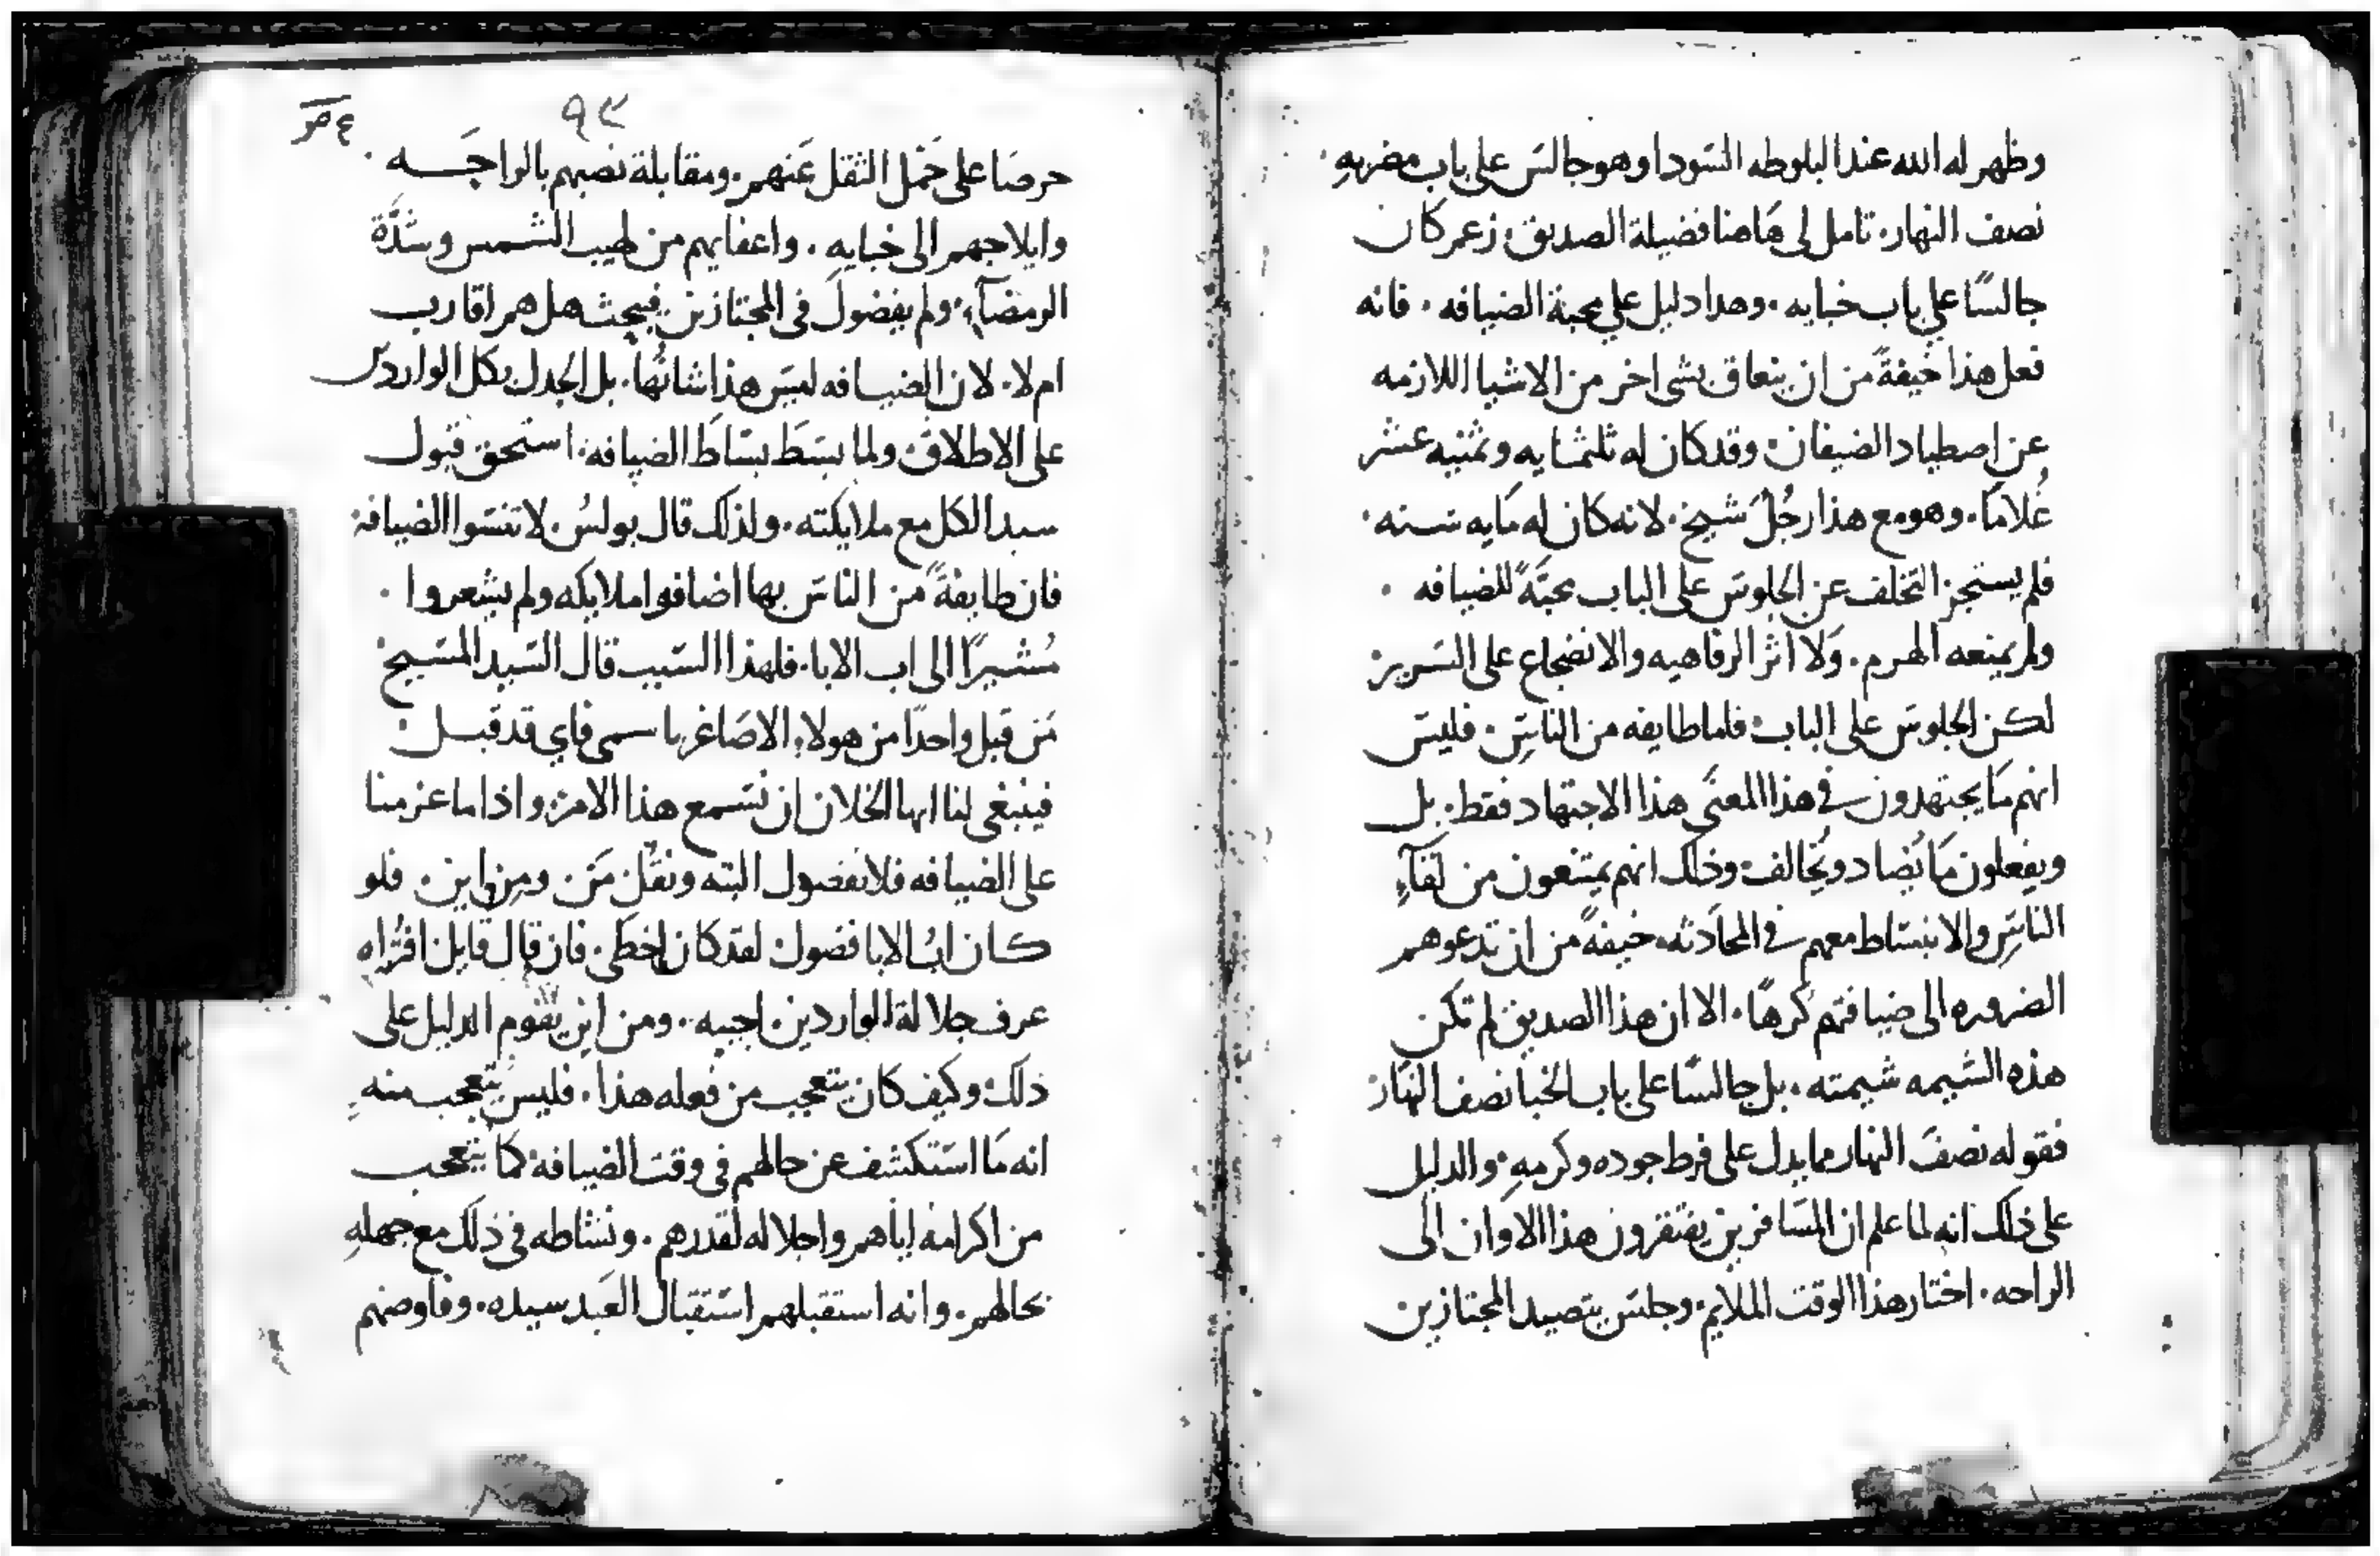 وظهر له الله عند البلوطه السودا وهو جالس على باب مضربهِ
نصف النهار. تامل لى هاهنا فضيلة الصديق. زعم كان
جالسًا علي باب خبايه. وهدا دليل علي محبة الضيافه. فانه
فعل هذا خيفةً من ان يتعاق بشى اخر من الاشيا اللازمه
عن اصطياد الضيفان. وقد كان له ثلثمايه وثمنيه عشر
غُلامًا. وهو مع هذا رجُلٌ شيخ. لانه كان له مَايه سنه.
فلم يستجز التخلف عن الجلوسَ على الباب محبَةً للضيافه.
ولم يمنعه الهرم. وَلا اثر الرفاهيه والانضجاع على السَرير:
لكن الجلوسَ على الباب. فلما طايفه من الناسِ. فليسَ
انهم مَا يجتهدون في هذا المعنَى هذا الاجتهاد فقط. بل
ويفعلون مَا يُضاد ويُخالف. وذلك انهم يمتنعون من لقآءِ
الناسِ والانبسَاط معهم في المحَادثه. خيفةً من ان تدعوهم
الضروره الى ضيافتهم كَرهًا. الا ان هذا الصديق لم تكن
هذه الشيمه شيمته. بل جالسًا على باب الخبا نصف النهَار:
فقوله نصفَ النهار مما يدل على فرط جوده وكرمهِ. والدليل
على ذلك انه لما علم ان المسَافرين يفتقرون هذا الاوان الَى
الراحه. اختار هذا الوقت الملايم. وجلسَ يتصيد المجتازين
٩٣
حرصَا على حَمْل الثقل عَنهم. ومقابلة نصبهم بالراحَه.
وايلاجهم الى خبايهِ. واعفايهم من لهيب الشمس وشدَّة
الرمضآء. ولم يفضول فى المجتازين فيبحث هل هم اقارب
ام لا. لان الضيافه ليسَ هذا شانُها. بل الجدل بكل الواردين
على الاطلاق. ولما بسَط بسَاطَ الضيافة. استحق قبول
سيد الكل مع ملايكته. ولذلك قال بولسُ. لا تنسَوا الضيافة
فان طايفةً من الناسَ بها اضافوا ملايكه ولم يشعروا.
مُشيرًا الى اب الابا. فلهذا السَبب قال السَيد المسَيح
مَن قبل واحدًا من هولاء الاصَاغر باسمى فاي قد قبل.
فينبغى لنا ايها الخلان ان نسَمع هذا الامر. واذا ما عزمنا
على الضيافه فلا نفضول البته ونقُل مَن. ومن اين. فلو
كان ابُ الابا فضول لقد كان اخطَى. فان قال قايل افتُراه
عرف جلالة الواردين. اجبه. ومن اين يقوم الدليل على
ذلك. وكيف كان يتعجب من فعله هذا. فليسَ يتعجب منهِ
انه مَا استَكشف عن حالهم فى وقت الضيافة. كمَا يتعجب
من اكرامهِ اياهم واجلاله لقدرهم. ونشاطه فى ذلك مع جهلهِ
بحالهم. وانه استقبلهم استقبال العَبد سيده. وفاوضهم